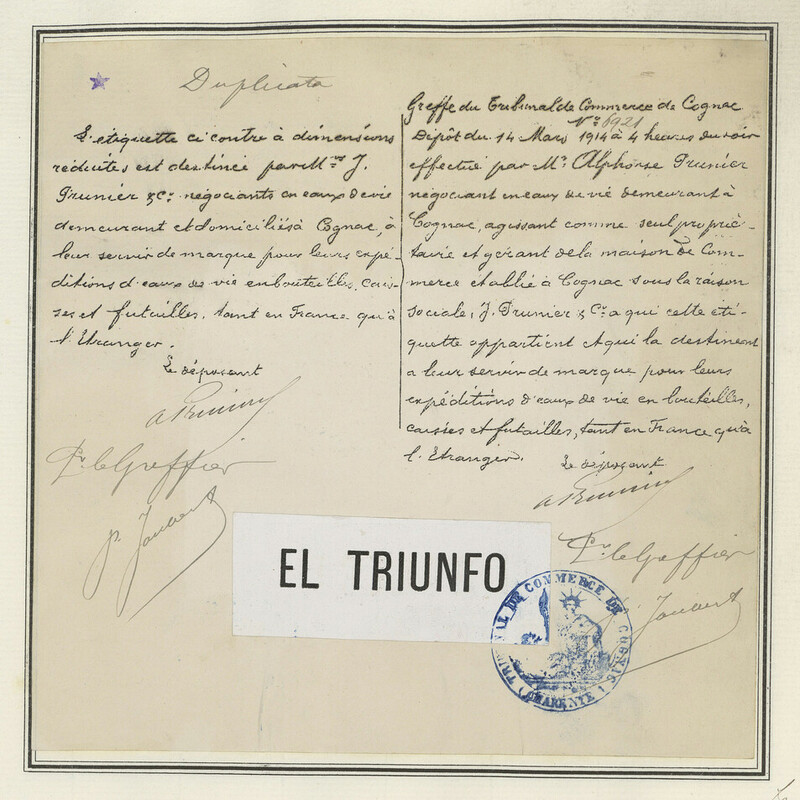 Duplicata
L'étiquette ci contre à dimensions
réduites est destinée par M.rs J.
Prunier & Cie négociants en eaux de vie
demeurant et domiciliés à Cognac, à
leur servir de marque pour leurs expé-
ditions d'eaux de vie en bouteilles, cais-
ses et futailles, tant en France qu'à
l'Etranger.
Le déposant
A Prunier
Pr le Greffier
P. Joubert
Greffe du Tribunal de Commerce de Cognac
No 6921
Dépôt du 14 Mars 1914 à 4 heures du soir
effectué par Mr Alphonse Prunier
négociant en eaux de vie demeurant à
Cognac, agissant comme seul proprié-
taire et gérant de la maison de Com-
merce établie à Cognac sous la raison
sociale, J. Prunier & Cie a qui cette éti-
quette appartient et qui la destinent
a leur servir de marque pour leurs
expéditions d'eaux de vie en bouteilles,
caisses et futailles, tant en France qu'à
l'Etranger.
Le déposant
A Prunier
Pr le Greffier
Joubert
EL TRIUNFO
TRIBUNAL DE COMMERCE DE COGNAC
(CHARENTE)